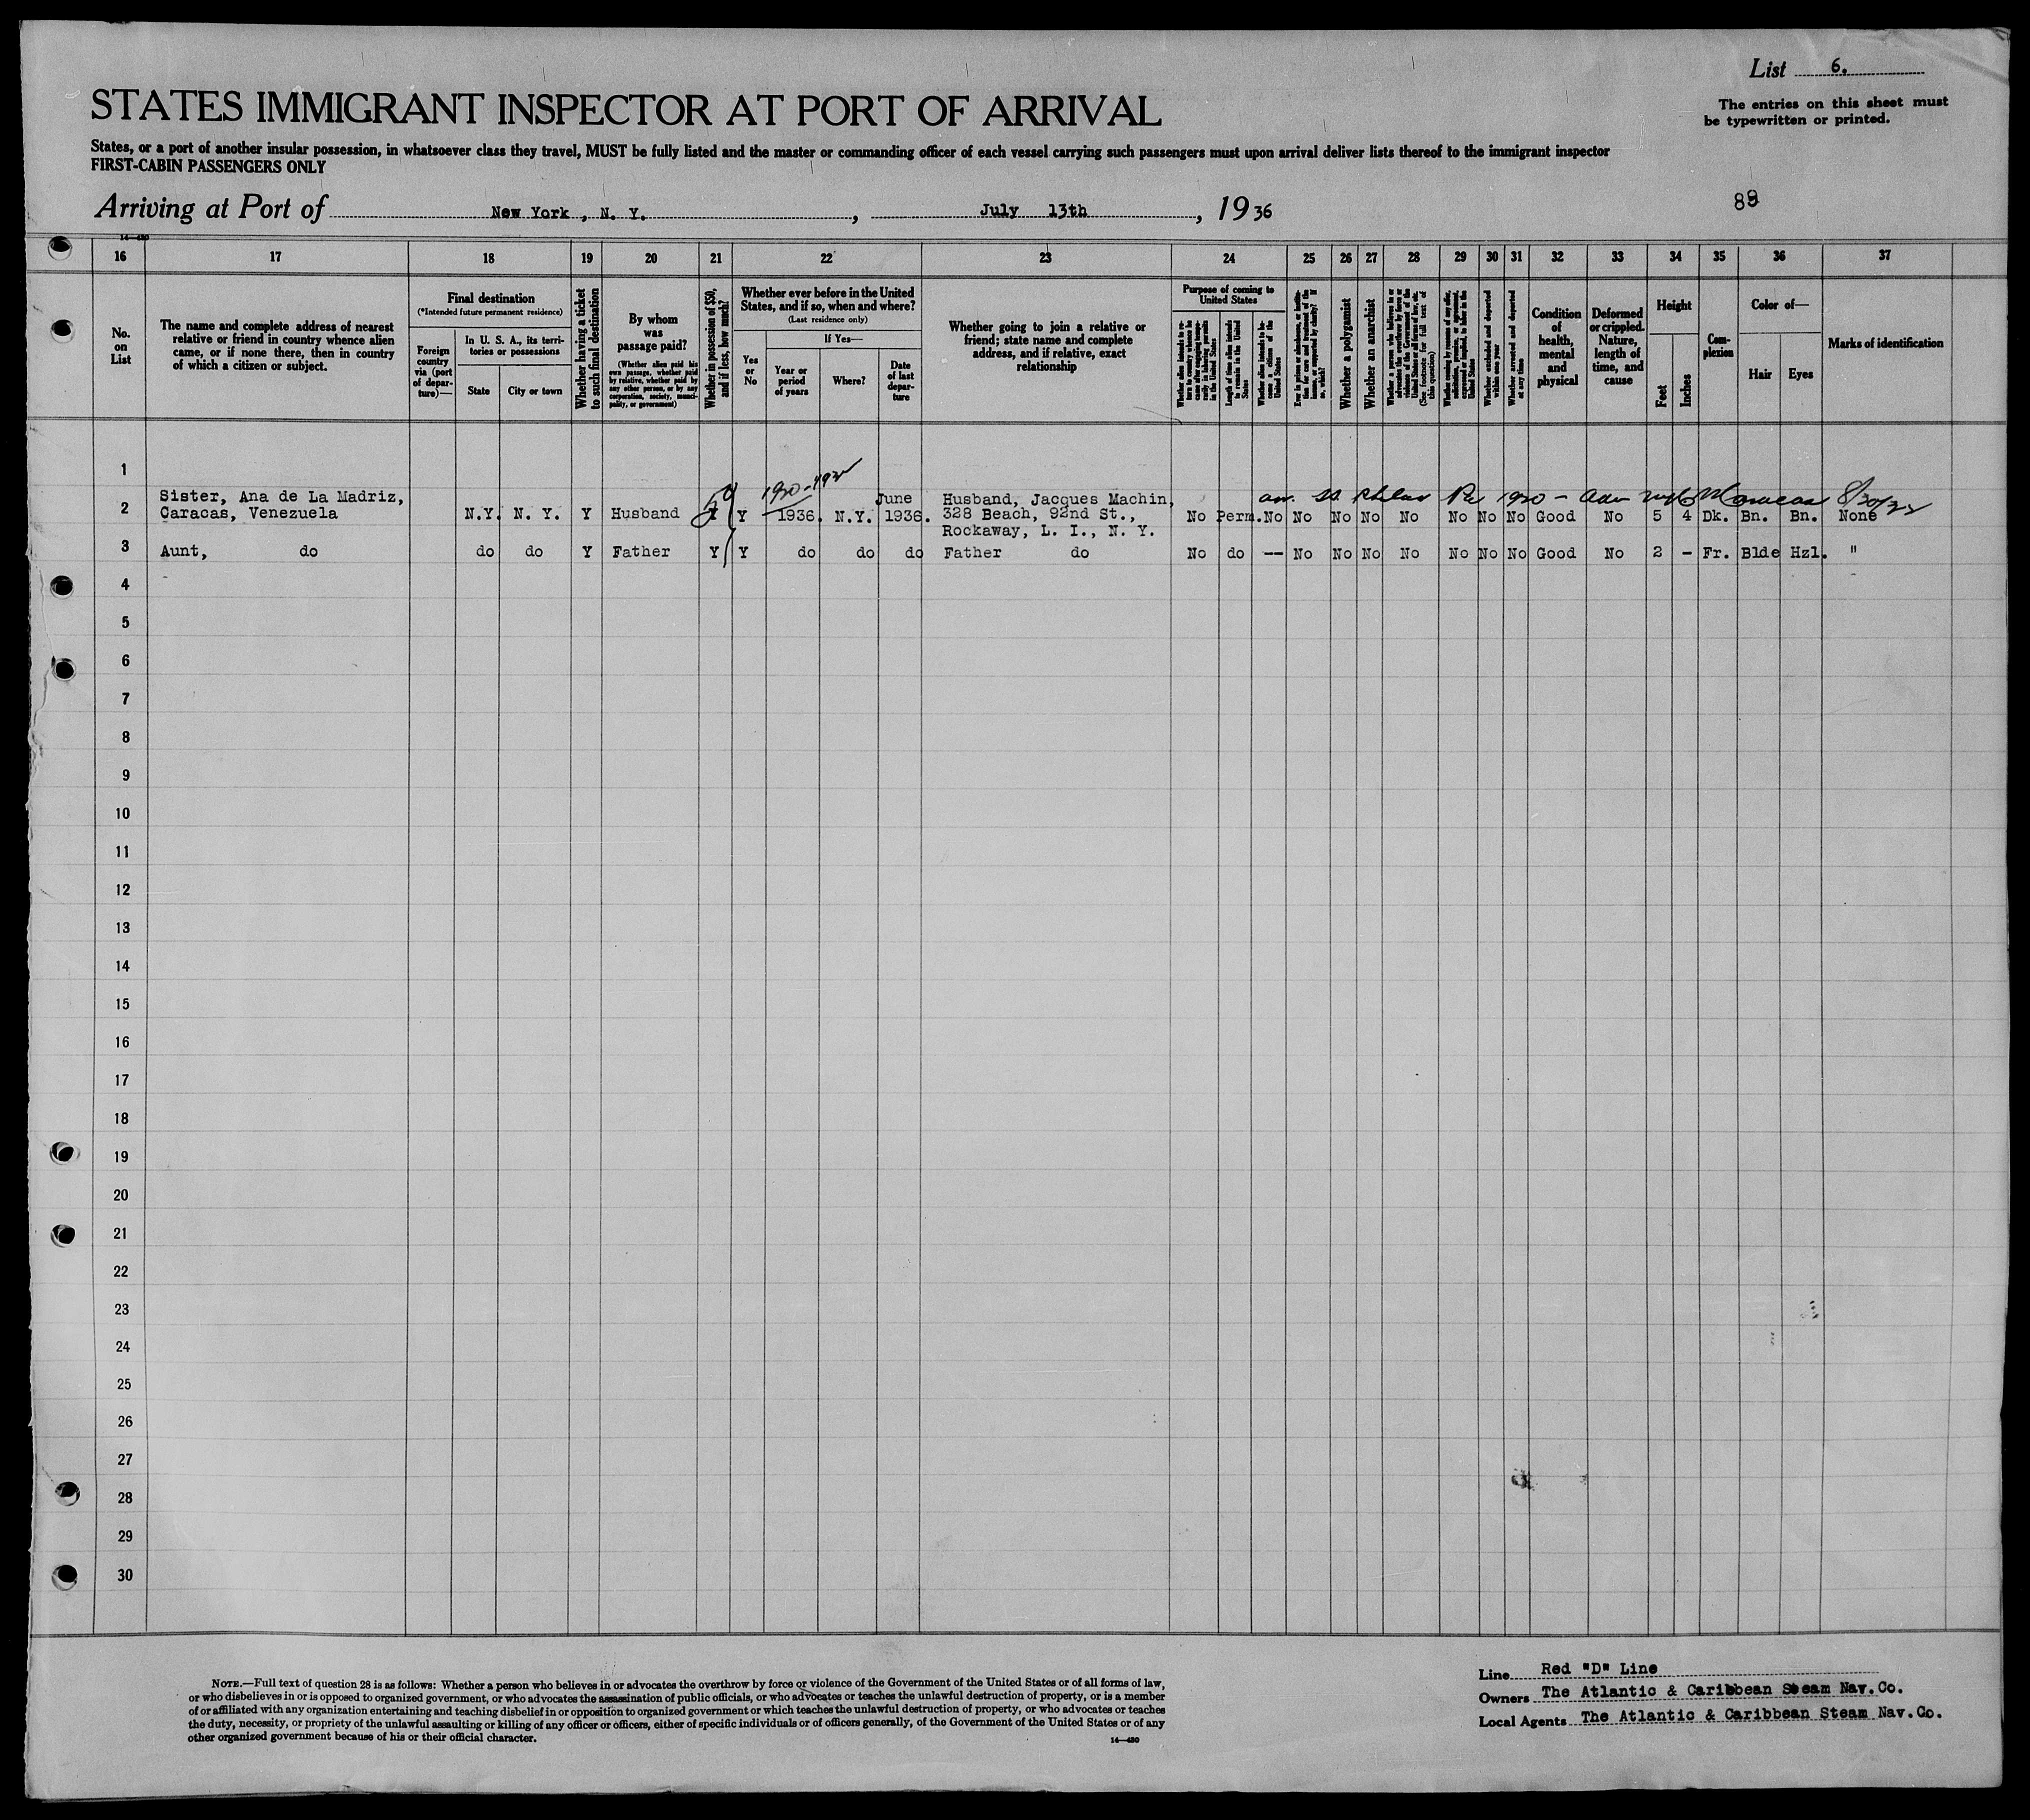 List 6.
The entries on this sheet must
be typewritten or printed.
STATES IMMIGRANT INSPECTOR AT PORT OF ARRIVAL
States, or a port of another insular possession, in whatsoever class they travel, MUST be fully listed and the master or commanding officer of each vessel carrying such passengers must upon arrival deliver lists thereof to the immigrant inspector
FIRST-CABIN PASSENGERS ONLY
Arriving at Port of New York, N. Y., July 13th, 1936
14-430
16 17 18 19 20 21 22 23 24 25 26 27 28 29 30 31 32 33 34 35 36 37
No.
on
List
The name and complete address of nearest
relative or friend in country whence alien
came, or if none there, then in country
of which a citizen or subject.
Final destination
(*Intended future permanent residence)
Foreign
country
via (port
of depar-
ture)—
In U. S. A., its terri-
tories or possessions
State
City or town
Whether having a ticket
to such final destination
By whom
was
passage paid?
(Whether alien paid his
own passage, whether paid
by relative, whether paid by
any other person, or by any
corporation, society, munici-
pality, or government)
Whether in possession of $50,
and if less, how much?
Whether ever before in the United
States, and if so, when and where?
(Last residence only)
Yes
or
No
If Yes—
Year or
period
of years
Where?
Date
of last
depar-
ture
Whether going to join a relative or
friend; state name and complete
address, and if relative, exact
relationship
Purpose of coming to
United States
Length of time alien intends
to remain in the United
States
Whether alien intends to be-
come a citizen of the
United States
Whether a polygamist
Whether an anarchist
Whether arrested and deported
at any time
Condition
of
health,
mental
and
physical
Deformed
or crippled.
Nature,
length of
time, and
cause
Height
Feet
Inches
Com-
plexion
Color of—
Hair
Eyes
Marks of identification
1
1920-
2 Sister, Ana de La Madriz,
Caracas, Venezuela
N.Y. N. Y. Y Husband Y 1936. N.Y. June 1936.
Husband, Jacques Machin,
328 Beach, 92nd St.,
Rockaway, L. I., N. Y.
No Perm. No No No No No No No No Good No 5 4 Dk. Bn. Bn. None
3 Aunt, do do do Y Father Y Y do do do Father do No do -- No No No No No No No Good No 2 - Fr. Blde Hzl. "
4
5
6
7
8
9
10
11
12
13
14
15
16
17
18
19
20
21
22
23
24
25
26
27
28
29
30
NOTE.—Full text of question 28 is as follows: Whether a person who believes in or advocates the overthrow by force or violence of the Government of the United States or of all forms of law,
or who disbelieves in or is opposed to organized government, or who advocates the assassination of public officials, or who advocates or teaches the unlawful destruction of property, or is a member
of or affiliated with any organization entertaining and teaching disbelief in or opposition to organized government or which teaches the unlawful destruction of property, or who advocates or teaches
the duty, necessity, or propriety of the unlawful assaulting or killing of any officer or officers, either of specific individuals or of officers generally, of the Government of the United States or of any
other organized government because of his or their official character.
14-430
Line Red "D" Line
Owners The Atlantic & Caribbean Steam Nav. Co.
Local Agents The Atlantic & Caribbean Steam Nav. Co.